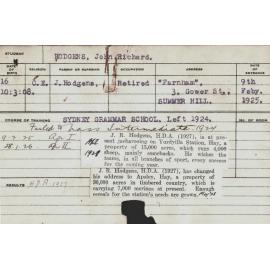 STUDENT
HODGENS, John Richard.
DATE OF BIRTH
RELIGION
PARENT OR GUARDIAN
OCCUPATION
ADDRESS
DATE OF ENTRY
16
10:3:08.
C.E.
J. Hodgens,
Retired
"Farnham",
3. Gower St.,
SUMMER HILL.
9th
Feby.
1925.
COURSE OF TRAINING
SYDNEY GRAMMAR SCHOOL. Left 1924.
Failed to pass Intermediate 1924
J. R. Hodgens, H.D.A. (1927), is at present
jackerooing on
Station, Hay, a
property of 15,000 acres, which runs 4,000
sheep, mainly
He wishes the
teams, in all branches of sport, every success
for the coming year.
J. R. Hodgens, H.D.A. (1927), has changed
his address to Apsley, Hay, a property of
30,000 acres in timbered country, which is
carrying 7,000 merinos at present. Enough
cereals for the station's needs are grown.
RESULTS
H.D.A. 1927